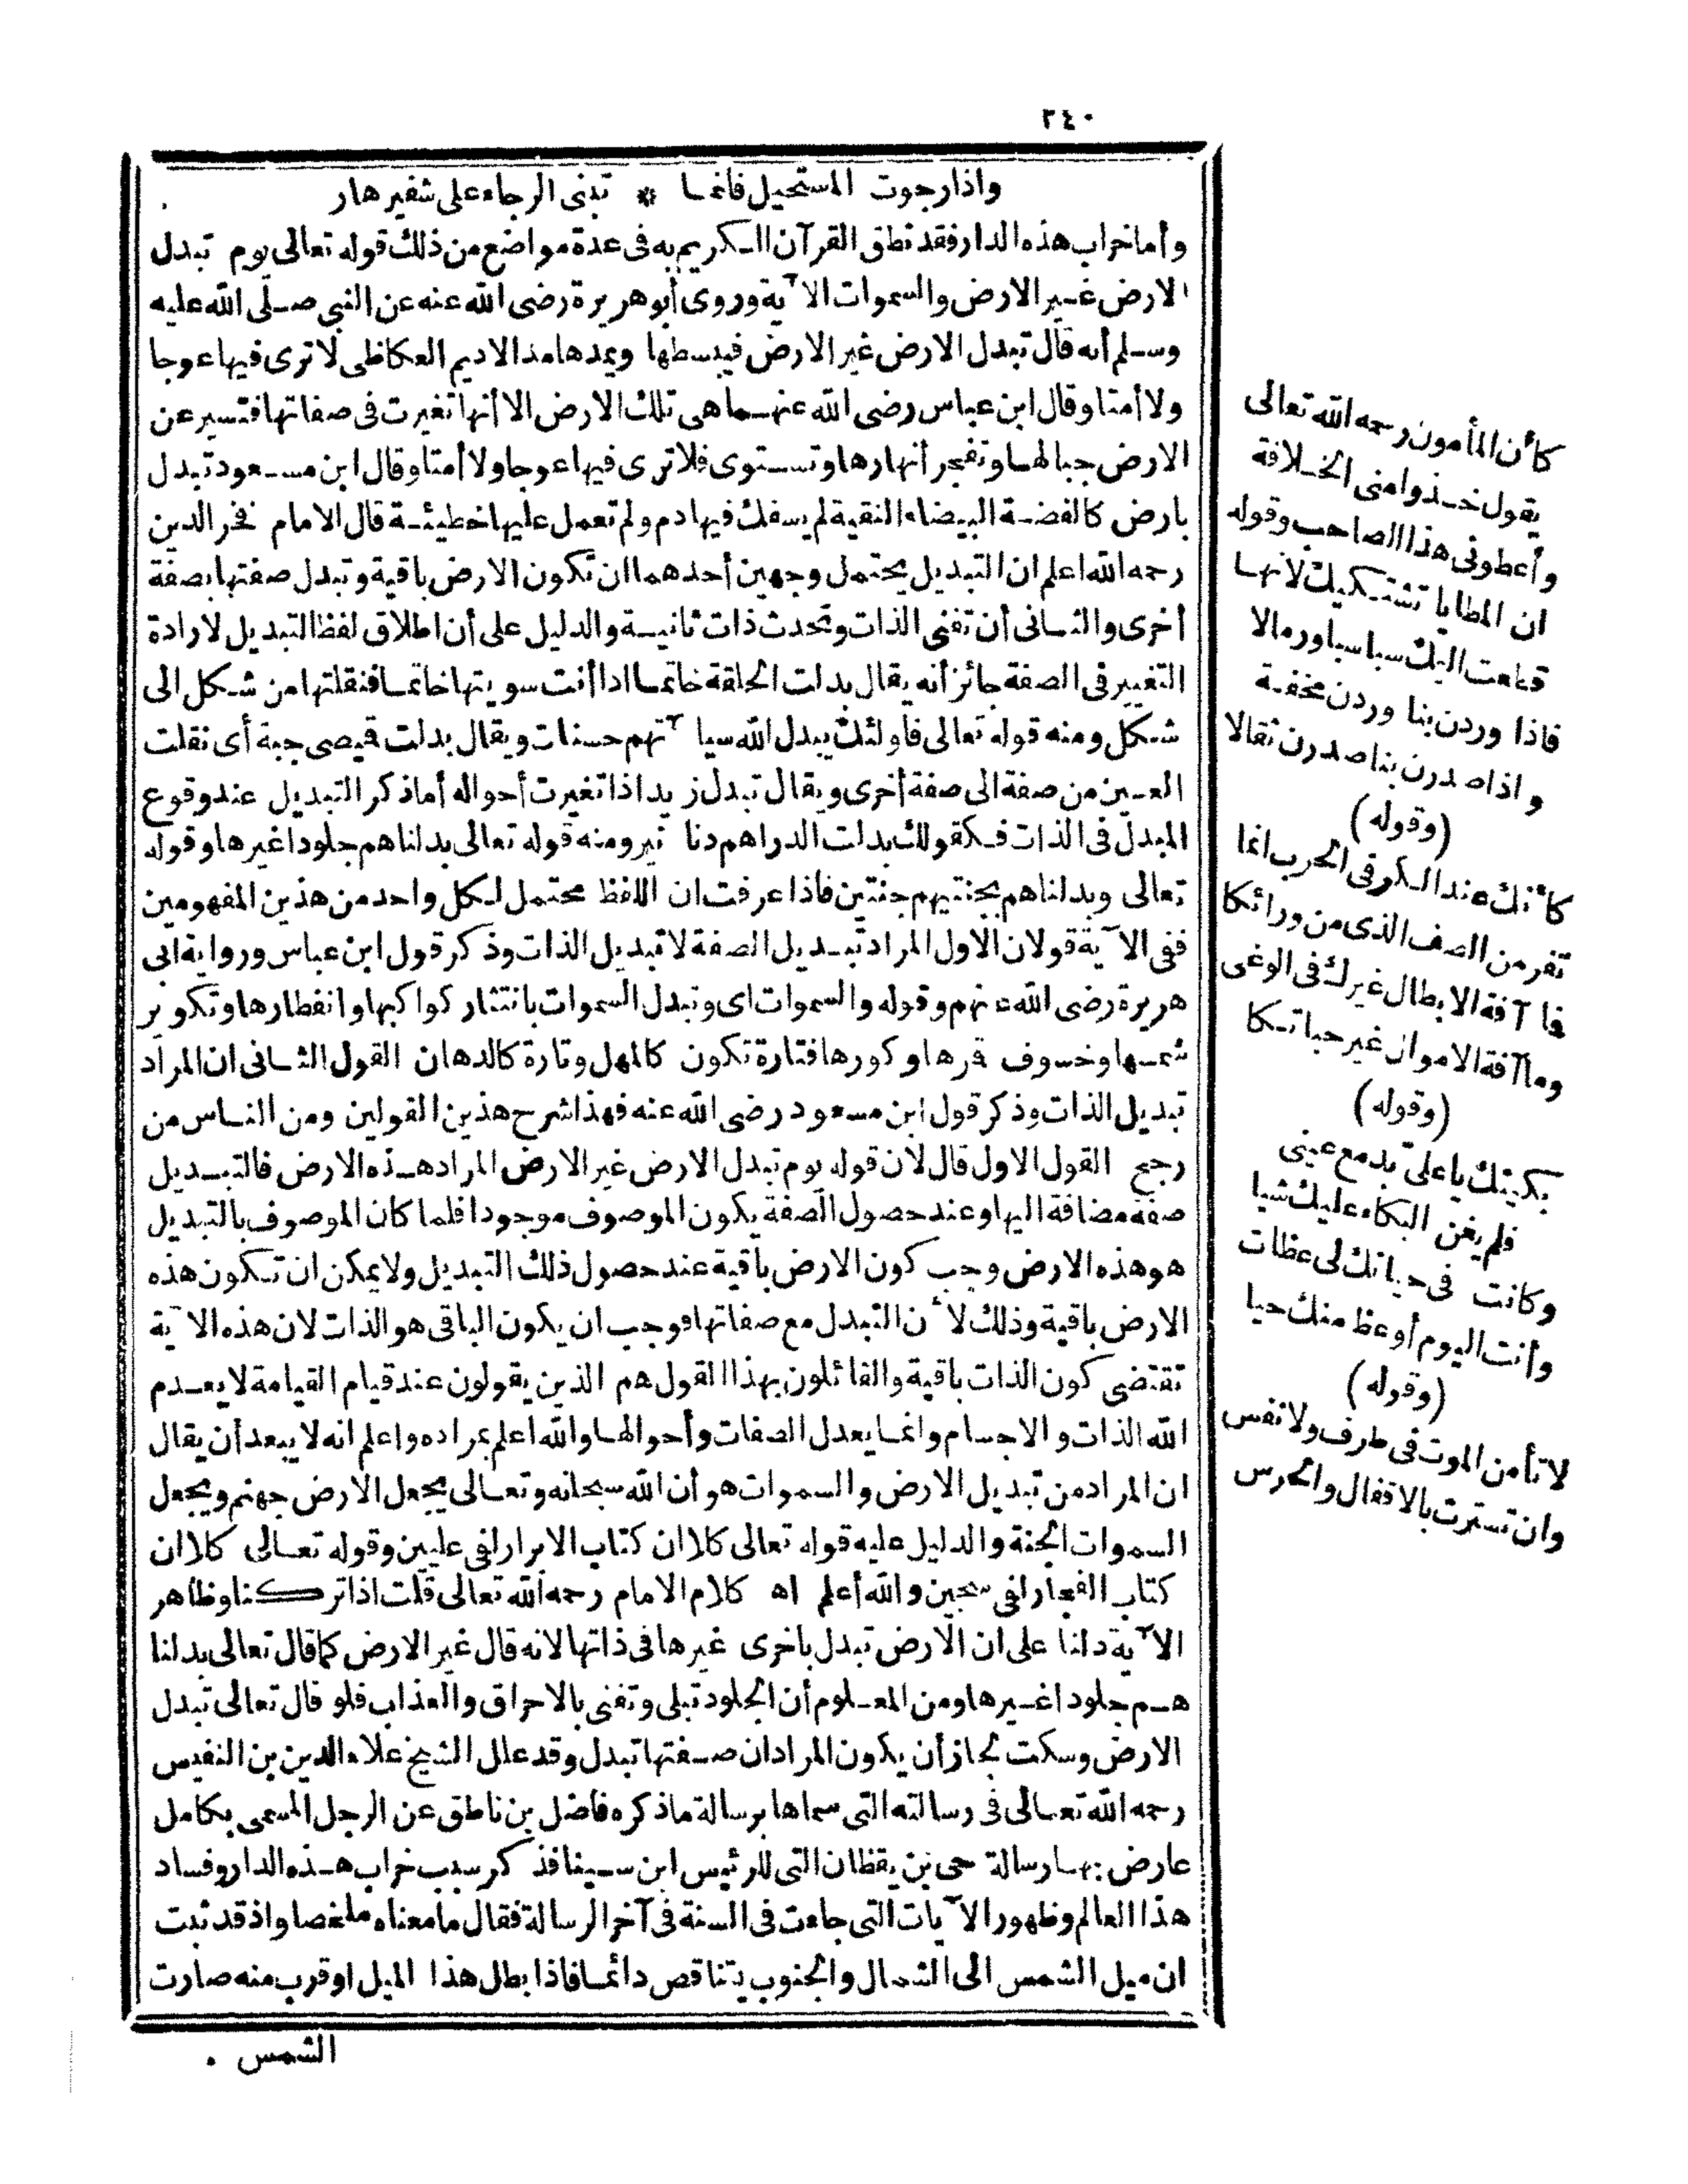 ٢٤٠
واذا رجوت المستحيل فانما * تبنى الرجاء على شفير هار
وأما خراب هذه الدار فقد نطق القرآن الكريم به فى عدة مواضع من ذلك قوله تعالى يوم تبدل
الارض غير الارض والسموات الآية وروى أبو هريرة رضى الله عنه عن النبى صلى الله عليه
وسلم أنه قال تبدل الارض غير الارض فيبسطها ويمدها مد الاديم العكاظى لا ترى فيها عوجا
ولا أمتا وقال ابن عباس رضى الله عنهما هى تلك الارض الا أنها تغيرت فى صفاتها فتسير عن
الارض جبالها وتفجر أنهارها وتستوى فلا ترى فيها عوجا ولا أمتا وقال ابن مسعود تبدل
بارض كالفضة البيضاء النقية لم يسفك فيها دم ولم تعمل عليها خطيئة قال الامام فخر الدين
رحمه الله اعلم ان التبديل يحتمل وجهين أحدهما ان تكون الارض باقية وتبدل صفتها بصفة
أخرى والثانى أن تفنى الذات وتحدث ذات ثانية والدليل على أن اطلاق لفظ التبديل لارادة
التغيير فى الصفة جائز أنه يقال بدلت الحلقة خاتما اذا أنت سويتها خاتما فنقلتها من شكل الى
شكل ومنه قوله تعالى فأولئك يبدل الله سيآتهم حسنات ويقال بدلت قميصى جبة أى نقلت
العين من صفة الى صفة أخرى ويقال تبدل زيد اذا تغيرت أحواله أما ذكر التبديل عند وقوع
المبدل فى الذات فكقولك بدلت الدراهم دنا نير ومنه قوله تعالى بدلناهم جلودا غيرها وقوله
تعالى وبدلناهم بجنتيهم جنتين فاذا عرفت ان اللفظ محتمل لكل واحد من هذين المفهومين
ففى الآية قولان الاول المراد تبديل الصفة لا تبديل الذات وذكر قول ابن عباس ورواية ابى
هريرة رضى الله عنهم وقوله والسموات اى وتبدل السموات بانتثار كواكبها وانفطارها وتكوير
شمسها وخسوف قمرها وكورها فتارة تكون كالمهل وتارة كالدهان القول الثانى ان المراد
تبديل الذات وذكر قول ابن مسعود رضى الله عنه فهذا شرح هذين القولين ومن الناس من
رجح القول الاول قال لأن قوله يوم تبدل الارض غير الارض المراد هذه الارض فالتبديل
صفة مضافة اليها وعند حصول الصفة يكون الموصوف موجودا فلما كان الموصوف بالتبديل
هو هذه الارض وجب كون الارض باقية عند حصول ذلك التبديل ولا يمكن ان تكون هذه
الارض باقية وذلك لأن التبدل مع صفاتها فوجب ان يكون الباقى هو الذات لان هذه الآية
تقتضى كون الذات باقية والقائلون بهذا القول هم الذين يقولون عند قيام القيامة لا يعدم
الله الذات والاجسام وانما يعدل الصفات وأحوالها والله اعلم بمراده واعلم انه لا يبعد أن يقال
ان المراد من تبديل الارض والسموات هو أن الله سبحانه وتعالى يجعل الارض جهنم ويجعل
السموات الجنة والدليل عليه قوله تعالى كلا ان كتاب الابرار لفى عليين وقوله تعالى كلا ان
كتاب الفجار لفى سجين والله أعلم اه كلام الامام رحمه الله تعالى قلت اذا تركنا وظاهر
الآية دلنا على ان الارض تبدل باخرى غيرها فى ذاتها لانه قال غير الارض كما قال تعالى بدلنا
هم جلودا غيرها ومن المعلوم أن الجلود تبلى وتفنى بالاحراق والعذاب فلو قال تعالى تبدل
الارض وسكت لجاز أن يكون المراد ان صفتها تبدل وقد علل الشيخ علاء الدين بن النفيس
رحمه الله تعالى فى رسالته التى سماها برسالة ما ذكره فاضل بن ناطق عن الرجل المسمى بكامل
عارض بها رسالة حى بن يقظان التى للرئيس ابن سينا فذكر سبب خراب هذه الدار وفساد
هذا العالم وظهور الآيات التى جاءت فى السنة فى آخر الرسالة فقال ما معناه ملخصا واذ قد ثبت
ان ميل الشمس الى الشمال والجنوب يتناقص دائما فاذا بطل هذا الميل او قرب منه صارت
الشمس
كأن المأمون رحمه الله تعالى
يقول خذوا منى الخلافة
وأعطونى هذا الصاحب وقوله
ان المطايا تشتكيك لانها
قطعت اليك سباسبا ورمالا
فاذا وردن بنا وردن مخفة
واذا صدرن بنا صدرن ثقالا
(وقوله)
كأنك عند الكر فى الحرب انما
تفر من الصف الذى من ورائكا
فما آفة الابطال غيرك فى الوغى
وما آفة الاموال غير حباتكا
(وقوله)
بكيتك يا على بدمع عينى
فلم يغن البكاء عليك شيا
وكانت فى حياتك لى عظات
وأنت اليوم أوعظ منك حيا
(وقوله)
لا تأمن الموت فى طرف ولا نفس
وان تسترت بالاقفال والحرس